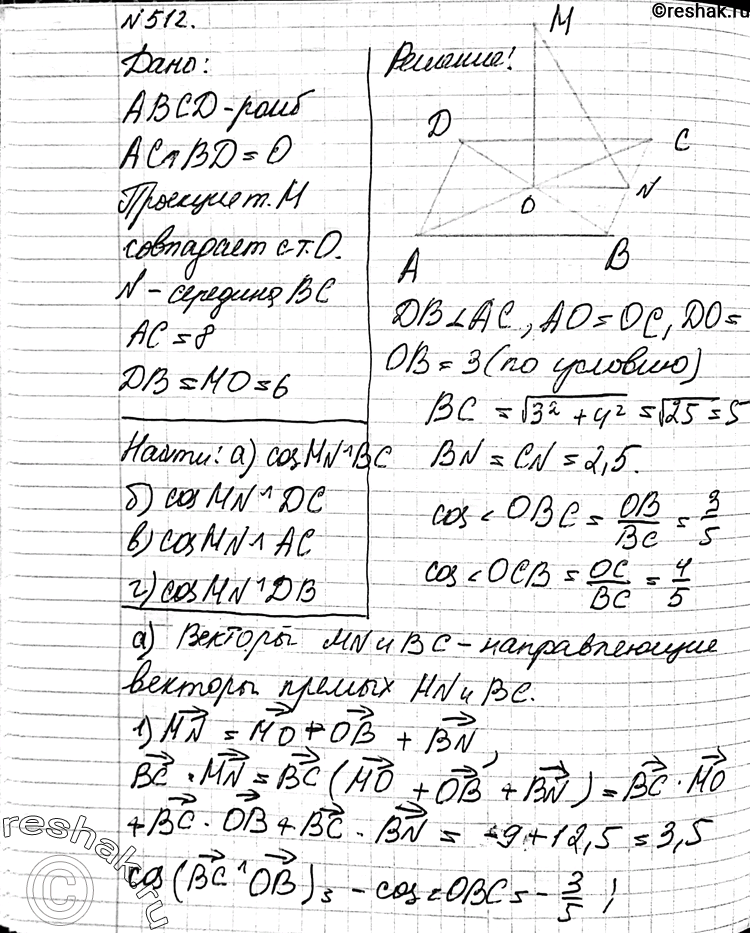 ©reshak.ru
№512.
Дано:
ABCD - ромб
AC∩BD=O
Проекция т. M
совпадает с т. O.
N - середина BC
AC=8
DB=MO=6
Найти: а) cos MN^BC
б) cos MN^DC
в) cos MN^AC
г) cos MN^DB
Решение:
M
D
C
O
N
A
B
DB⊥AC, AO=OC, DO=
OB=3 (по условию)
BC = √3²+4² = √25 = 5
BN=CN=2,5.
cos<OBC = OB/BC = 3/5
cos<OCB = OC/BC = 4/5
а) Векторы MN и BC - направляющие
векторы прямых MN и BC.
1) MN = MO + OB + BN,
BC · MN = BC (MO + OB + BN) = BC · MO
+ BC · OB + BC · BN = -9+12,5=3,5
cos (BC^OB) = -cos<OBC = -3/5;
reshak.ru
©